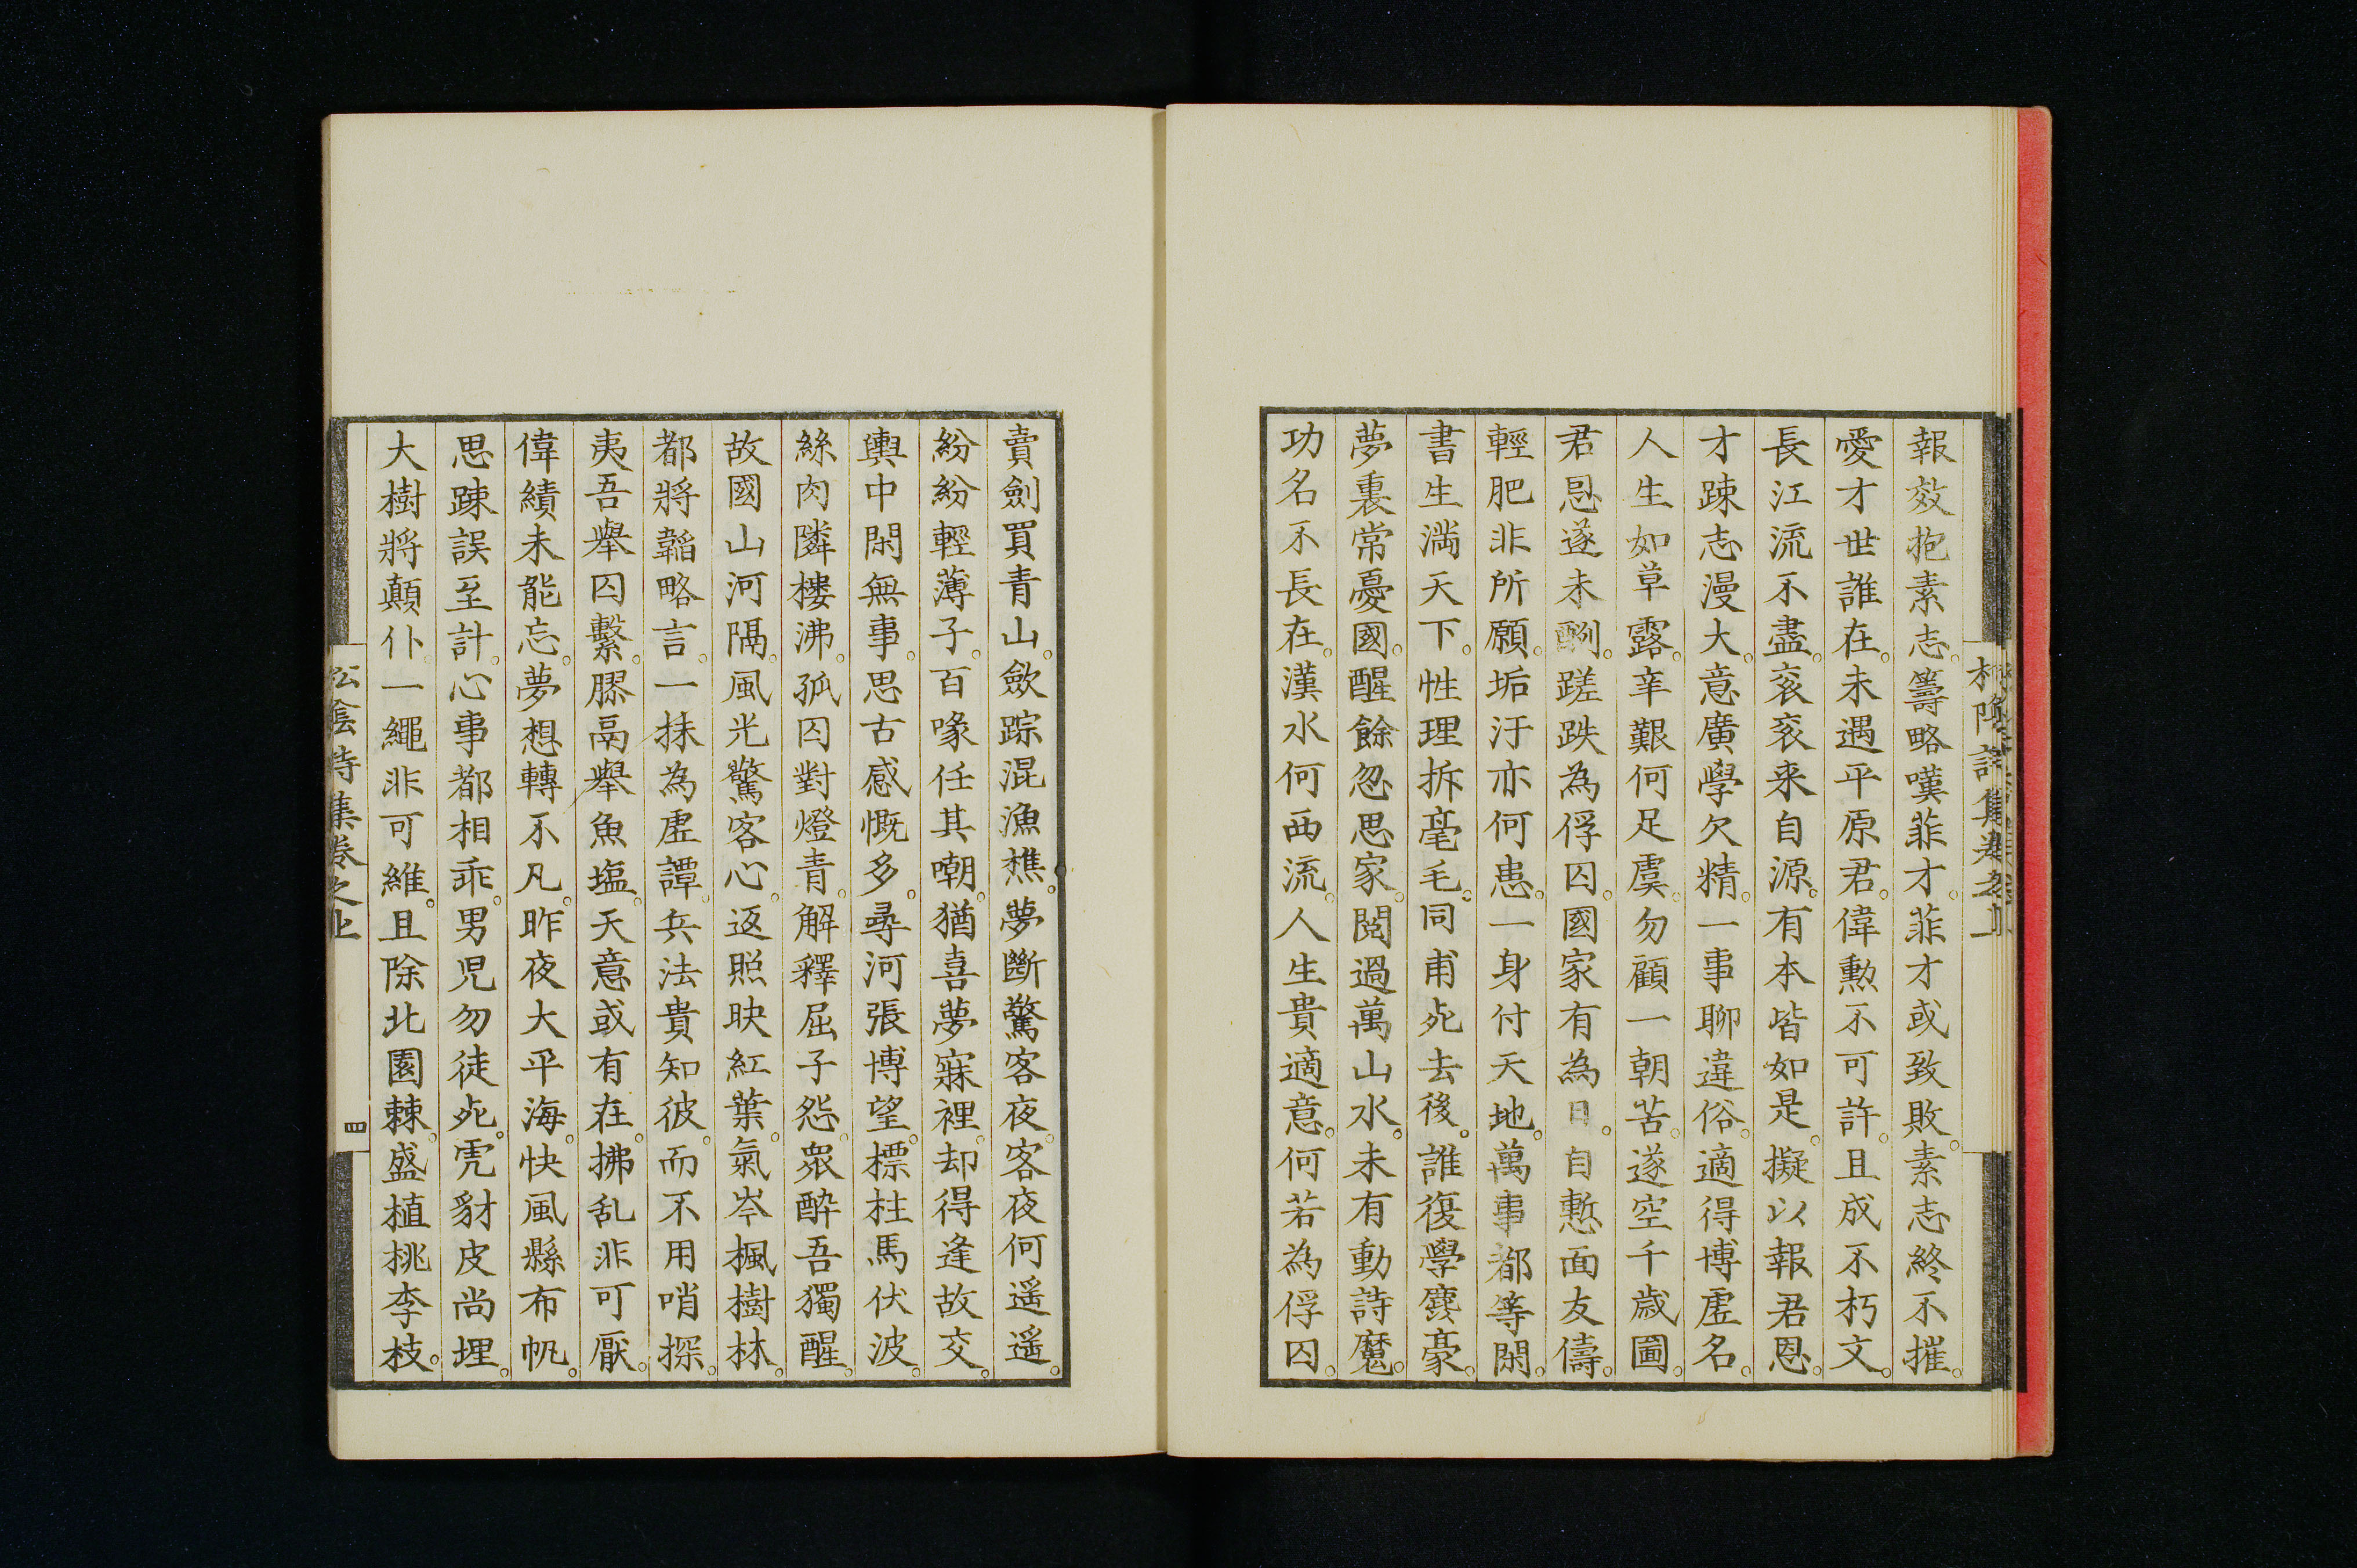 報效抱素志。籌略嘆菲才。菲才或致敗。素志終不摧。
愛才世誰在。未遇平原君。偉勲不可許。且成不朽文。
長江流不盡。袞袞来自源。有本皆如是。擬以報君恩。
才踈志漫大。意廣學欠精。一事聊違俗。適得博虚名。
人生如草露。辛艱何足虞。勿顧一朝苦。遂空千歳圖。
君恩遂未酬。蹉跌為俘囚。國家有為日。自慙面友儔。
輕肥非所願。垢汙亦何患。一身付天地。萬事都等閑。
書生満天下。性理拆毫毛。同甫死去後。誰復學麤豪。
夢裏常憂國。醒餘忽思家。閲過萬山水。未有動詩魔。
功名不長在。漢水何西流。人生貴適意。何若為俘囚。
賣劍買青山。歛踪混漁樵。夢斷驚客夜。客夜何遥遥。
紛紛輕薄子。百喙任其嘲。猶喜夢寐裡。却得逢故交。
輿中閑無事。思古感慨多。尋河張博望。標柱馬伏波。
絲肉隣樓沸。孤囚對燈青。解釋屈子怨。衆酔吾獨醒。
故國山河隔。風光驚客心。返照映紅葉。氣岑楓樹林。
都將韜略言。一抹為虚譚。兵法貴知彼。而不用哨探。
夷吾舉囚繋。膠鬲舉魚塩。天意或有在。拂乱非可厭。
偉績未能忘。夢想轉不凡。昨夜大平海。快風懸布帆。
思踈誤至計。心事都相乖。男児勿徒死。虎豺皮尚埋。
大樹將顛仆。一繩非可維。且除北園棘。盛植桃李枝。
松陰詩集巻之上
四